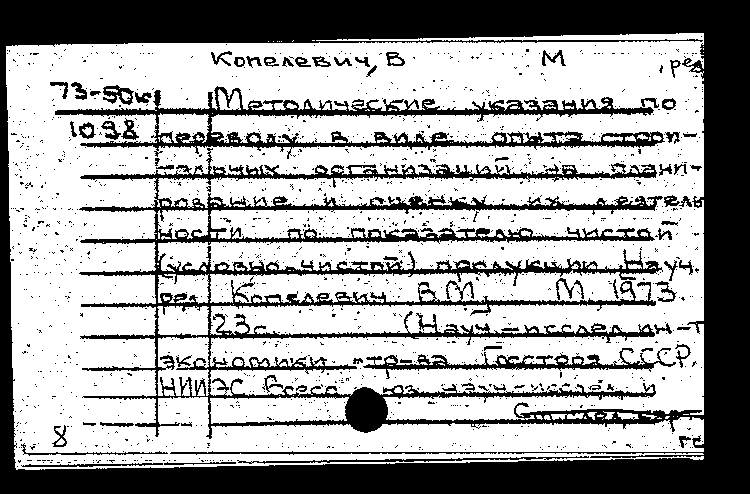 Копелевич, В М , ред
73-50к Методические указания по
1098 переводу в виде опыта строи-
тельных организаций на плани-
рование и оценку их деятель
ности по показателю чистой
(условно-чистой) продукции. Науч.
ред. Копелевич В.М. М., 1973.
23с. (Науч-исслед. ин-т
экономики стр-ва Госстроя СССР.
НИИЭС Всесоюз. науч-исслед. и
См. след. кар-
8